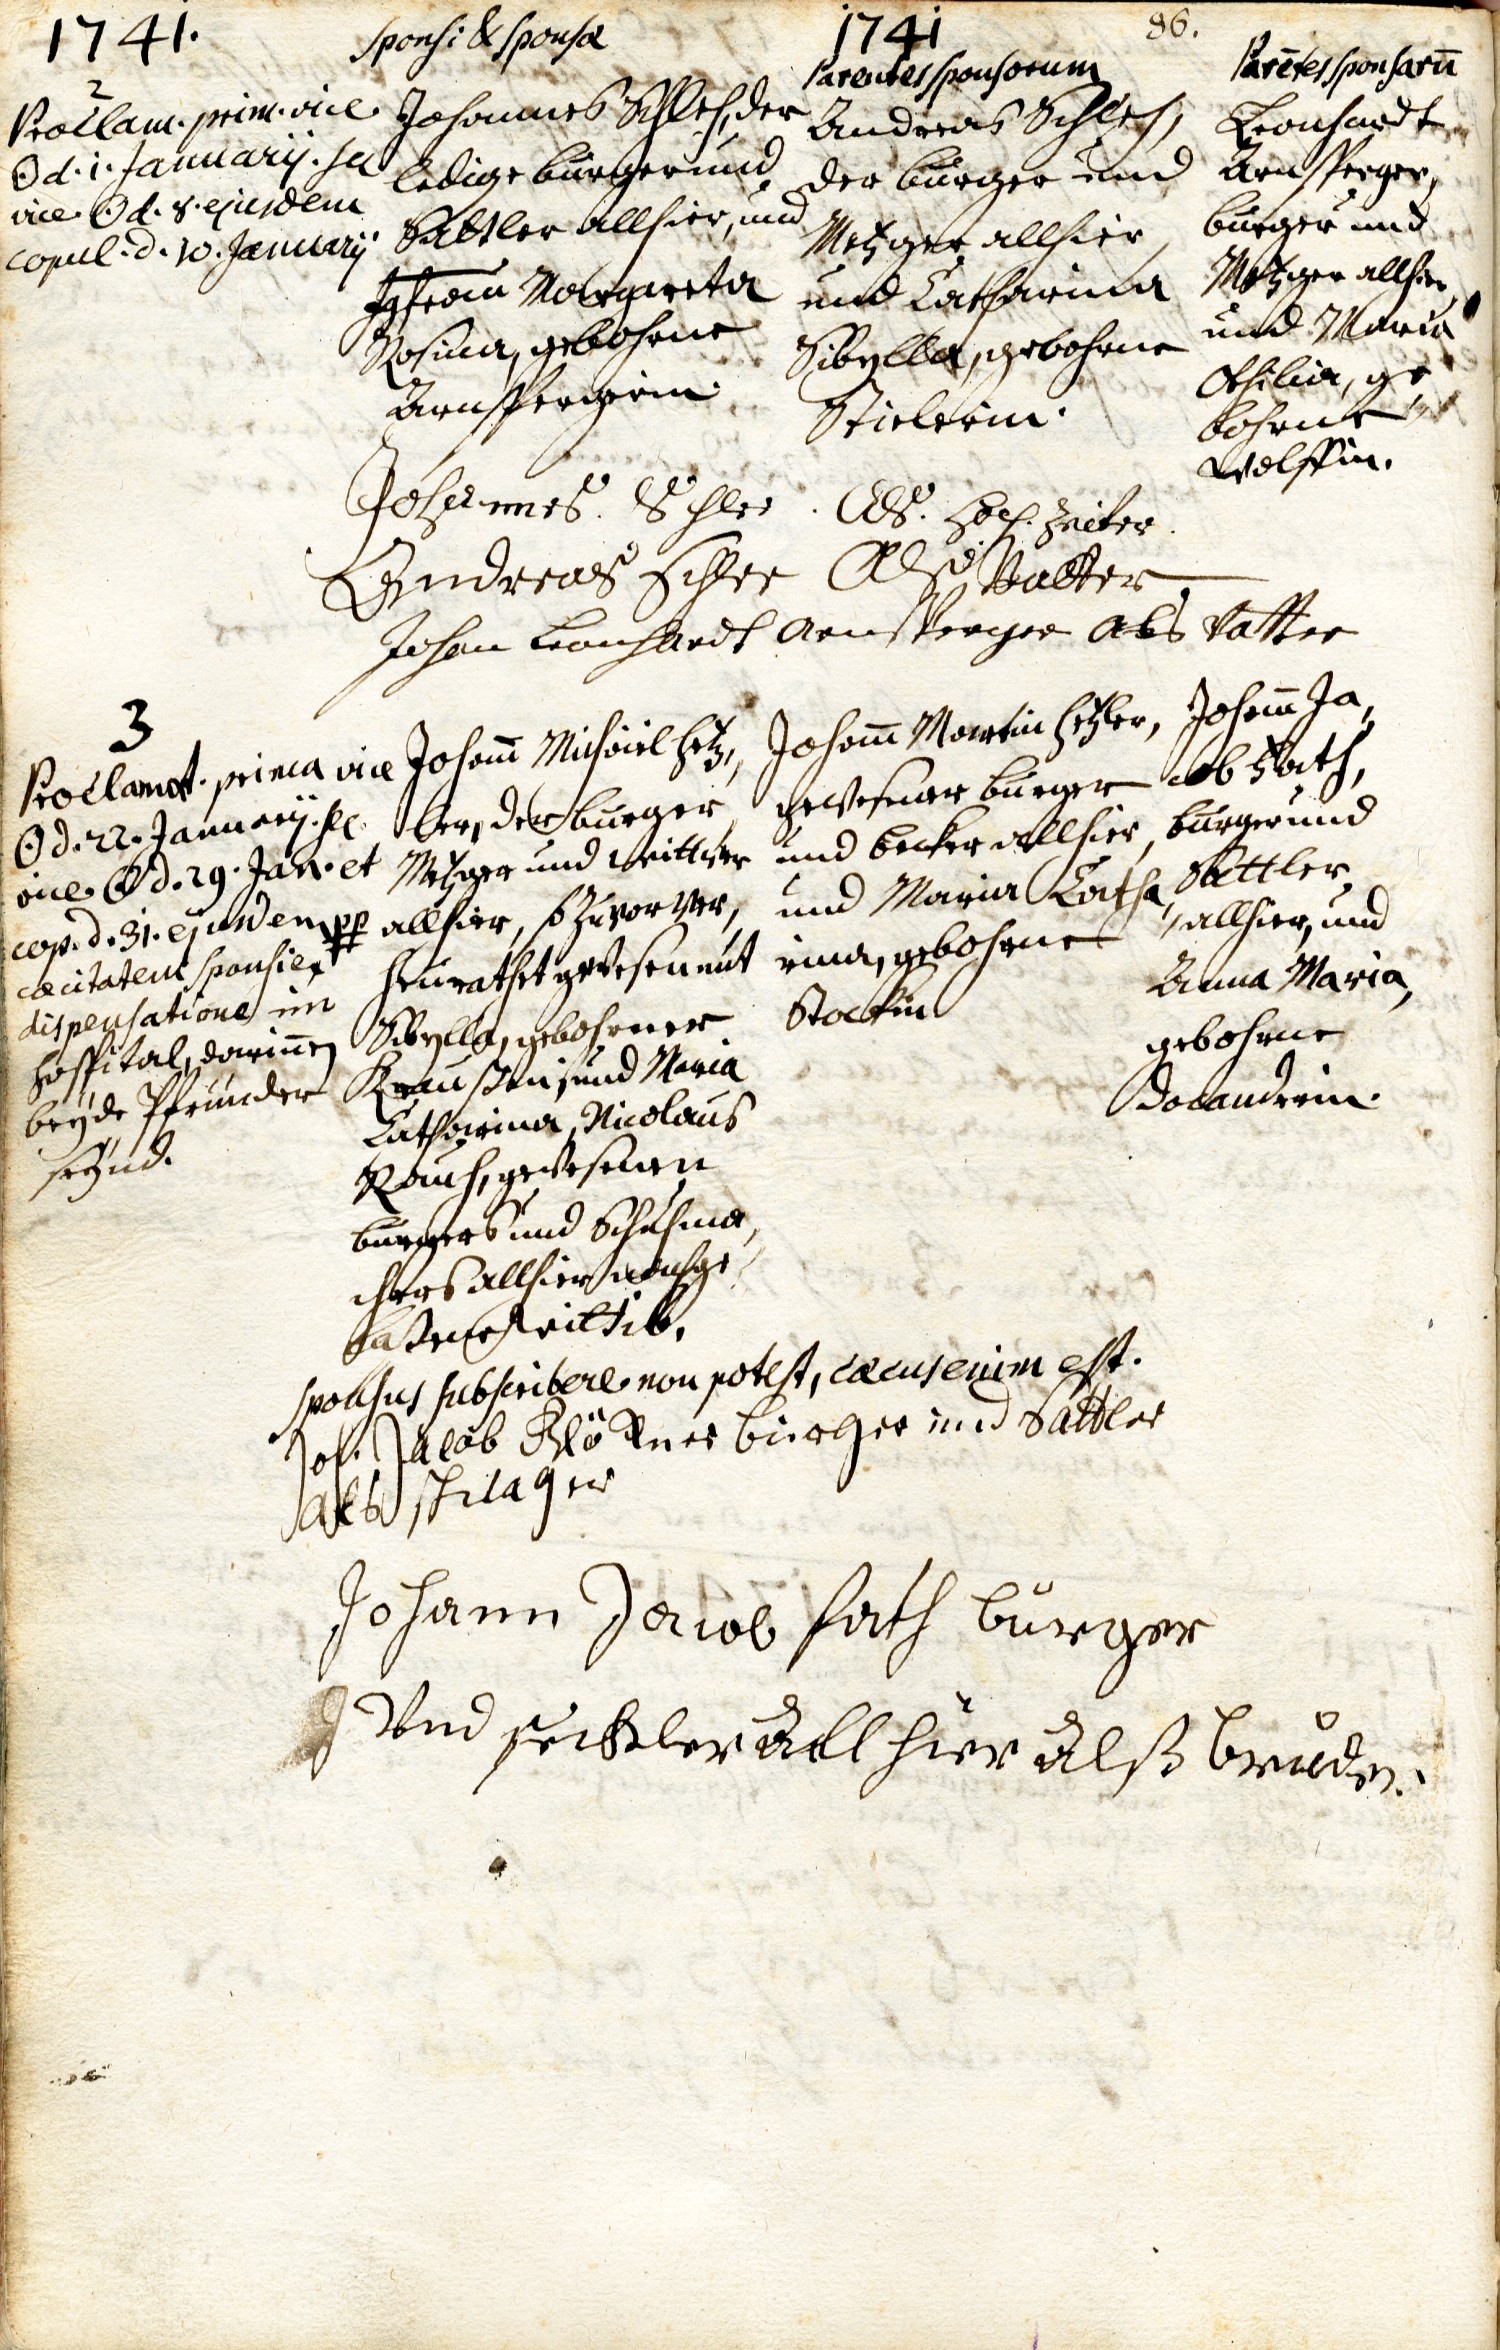 1741.
sponsi & sponsæ
1741
86.
Parentes sponsorum
Parētes sponsarū
2
Proclam. prim. vice
☉ d. 1. Januarij. sec
vice ☉ d. 8. ejusdem
copul. d. 10. Januarij
Johannes Schleh, der
ledige burger und
Sattler allhier, und
Jgfrau Margareta
Rosina, gebohrne
Arnspergerin.
Andreas Schleh,
der burger und
Metzger allhier,
und Catharina
Sibylla, gebohrne
Stielerin.
Leonhardt
Arnsperger,
burger und
Metzger allhier,
und Maria
Othilia, ge,
bohrne
Wolffin.
Johannes Schlee. Als. Hoch. Zeiter.
Andreas Schlee Als Vatter
Johan Leonhardt Arnsperger als Vatter
3
Proclamat. prima vice
☉ d. 22. Januarij. sec.
vice ☉ d. 29. Jan. et
cop. d. 31. ejusdem pp
cæcitatem sponsi ex
dispensatione im
Hospital, darinnen
beyde Pfründer
seynd.
Johann Michäel Hetz,
ler, der burger,
Metzger und Wittwer
allhier, so zuvor ver,
heurathet gewesen mit
Sibylla, gebohrner
Kraussin, und Maria
Catharina, Nicolaus
Rauch, gewesenen
burgers und Schuhma,
chers allhier nachge,
laßene Wittib.
Johann Martin Hetzler,
gewesener burger
und becker allhier,
und Maria Catha,
rina, gebohrne
Stockin
Johann Ja,
cob Fath,
burger und
Sattler
allhier, und
Anna Maria,
gebohrne
sponsus subscribere non potest, cæcus enim est.
Joh. Jacob burger und Sattler
als
Johann Jacob Fath burger
Und seckler all hier alß bruder.